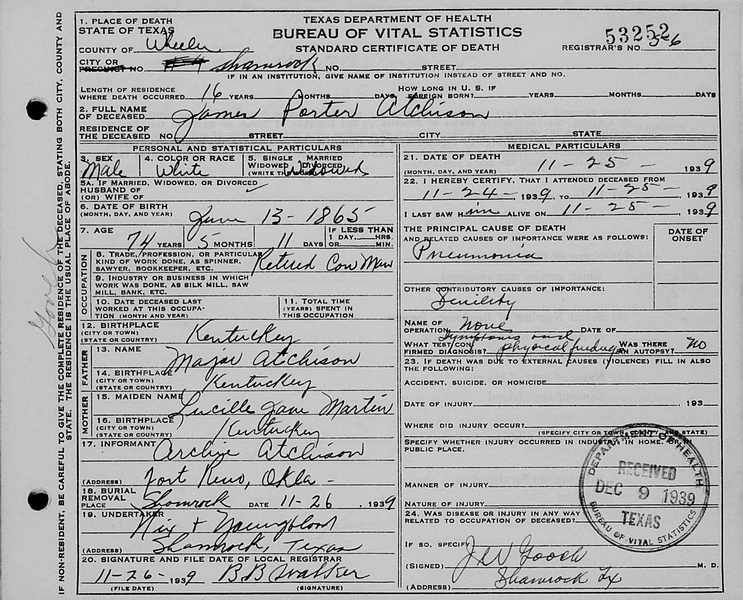 TEXAS DEPARTMENT OF HEALTH
BUREAU OF VITAL STATISTICS
STANDARD CERTIFICATE OF DEATH
53252
REGISTRAR'S NO. 56
1. PLACE OF DEATH
STATE OF TEXAS
COUNTY OF Wheeler
CITY OR PRECINCT NO. Shamrock NO. STREET
IF IN AN INSTITUTION, GIVE NAME OF INSTITUTION INSTEAD OF STREET AND NO.
LENGTH OF RESIDENCE WHERE DEATH OCCURRED 16 YEARS MONTHS DAYS HOW LONG IN U. S. IF FOREIGN BORN? YEARS MONTHS DAYS
2. FULL NAME OF DECEASED James Porter Atchison
RESIDENCE OF THE DECEASED NO. STREET CITY STATE
PERSONAL AND STATISTICAL PARTICULARS
3. SEX Male 4. COLOR OR RACE White 5. SINGLE MARRIED WIDOWED DIVORCED (WRITE THE WORD) Widowed
5A. IF MARRIED, WIDOWED, OR DIVORCED
HUSBAND OF
(OR) WIFE OF
6. DATE OF BIRTH (MONTH, DAY, AND YEAR) June 13-1865
7. AGE 74 YEARS 5 MONTHS 11 DAYS IF LESS THAN 1 DAY, HRS. OR MIN.
OCCUPATION
8. TRADE, PROFESSION, OR PARTICULAR KIND OF WORK DONE, AS SPINNER, SAWYER, BOOKKEEPER, ETC. Retired Cow Man
9. INDUSTRY OR BUSINESS IN WHICH WORK WAS DONE, AS SILK MILL, SAW MILL, BANK, ETC.
10. DATE DECEASED LAST WORKED AT THIS OCCUPATION (MONTH AND YEAR)
11. TOTAL TIME (YEARS) SPENT IN THIS OCCUPATION
12. BIRTHPLACE (CITY OR TOWN) (STATE OR COUNTRY) Kentuckey
FATHER
13. NAME Major Atchison
14. BIRTHPLACE (CITY OR TOWN) (STATE OR COUNTRY) Kentuckey
MOTHER
15. MAIDEN NAME Lucille Jane Martin
16. BIRTHPLACE (CITY OR TOWN) (STATE OR COUNTRY) Kentuckey
17. INFORMANT Archie Atchison
(ADDRESS) Fort Reno, Okla -
18. BURIAL REMOVAL PLACE Shamrock DATE 11-26 1939
19. UNDERTAKER Nix & Youngblood
(ADDRESS) Shamrock, Texas
20. SIGNATURE AND FILE DATE OF LOCAL REGISTRAR
11-26- 1939 B B Walker
(FILE DATE) (SIGNATURE)
MEDICAL PARTICULARS
21. DATE OF DEATH (MONTH, DAY, AND YEAR) 11-25- 1939
22. I HEREBY CERTIFY, THAT I ATTENDED DECEASED FROM
11-24- 1939, TO 11-25- 1939
I LAST SAW Him ALIVE ON 11-25- 1939
THE PRINCIPAL CAUSE OF DEATH AND RELATED CAUSES OF IMPORTANCE WERE AS FOLLOWS:
DATE OF ONSET
Pneumonia
OTHER CONTRIBUTORY CAUSES OF IMPORTANCE:
Senility
NAME OF OPERATION None DATE OF
WHAT TEST CONFIRMED DIAGNOSIS? Symptoms and physical findings WAS THERE AN AUTOPSY? No
23. IF DEATH WAS DUE TO EXTERNAL CAUSES (VIOLENCE) FILL IN ALSO THE FOLLOWING:
ACCIDENT, SUICIDE, OR HOMICIDE
DATE OF INJURY 193
WHERE DID INJURY OCCUR?
(SPECIFY CITY OR TOWN, COUNTY, AND STATE)
SPECIFY WHETHER INJURY OCCURRED IN INDUSTRY, IN HOME, OR IN PUBLIC PLACE.
MANNER OF INJURY
NATURE OF INJURY
24. WAS DISEASE OR INJURY IN ANY WAY RELATED TO OCCUPATION OF DECEASED?
IF SO, SPECIFY
(SIGNED) J W Gooch M. D.
(ADDRESS) Shamrock Tx
DEPARTMENT OF HEALTH
RECEIVED
DEC 9 1939
TEXAS
BUREAU OF VITAL STATISTICS
IF NON-RESIDENT, BE CAREFUL TO GIVE THE COMPLETE RESIDENCE OF THE DECEASED, STATING BOTH CITY, COUNTY AND
STATE. THE RESIDENCE IS THE USUAL PLACE OF ABODE.